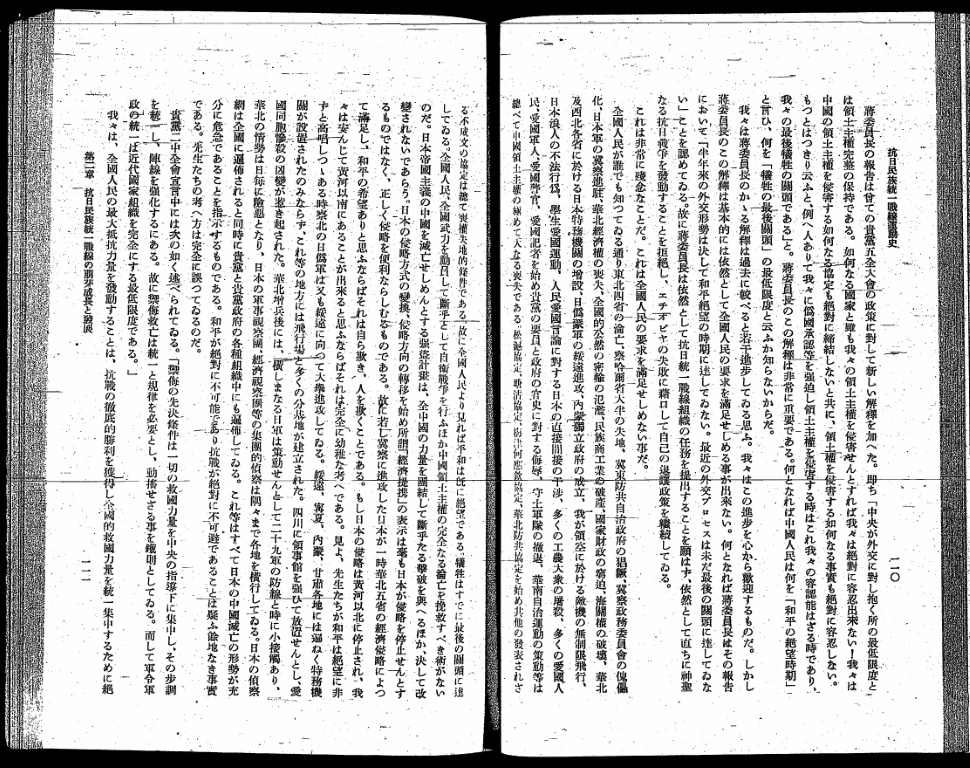 抗日民族統一戰線運動史
一一〇
蔣委員長の報告は曾ての貴黨五全大會の政策に對して新しい解釋を加へた。卽ち「中央が外交に對し抱く所の最低限度と
は領土主權完整の保持である。如何なる國家と雖も我々の領土主權を侵害せんとすれば我々は絕對に容忍出來ない！我々は
中國の領土主權を侵害する如何なる協定も絕對に締結しないと共に、領土權を侵害する如何なる事實も絕對に容忍しない。
もつとはつきり云ふと、例へ人ありて我々に僞國承認等を强迫し領土主權を侵害する時はこれ我々の容認能はざる時であり、
我々の最後犧牲の關頭である」と。蔣委員長のこの解釋は非常に重要である。何となれば中國人民は何を「和平の絕望時期」
と言ひ、何を「犧牲の最後關頭」の最低限度と云ふか知らないからだ。
我々は蔣委員長のかゝる解釋は過去に較べると若干進步してゐる思ふ。我々はこの進步を心から歡迎するものだ。しかし
蔣委員長のこの解釋は基本的には依然として全國人民の要求を滿足せしめる事が出來ない。何となれば蔣委員長はその報告
において「半年來の外交形勢は決して和平絕望の時期に達してゐない。最近の外交プロセスは未だ最後の關頭に達してゐな
い」ことを認めてゐる。故に蔣委員長は依然として抗日統一戰線組織の任務を提出することを願はず、依然として直ちに神聖
なる抗日戰爭を發動することを拒絕し、エチオピヤの失敗に藉口して自己の退讓政策を繼續してゐる。
これは非常に殘念なことだ。これは全國人民の要求を滿足せしめない事だ。
全國人民が誰でも知つてゐる通り東北四省の淪亡、察哈爾省大半の失地、冀東防共自治政府の猖獗、冀察政務委員會の傀儡
化、日本軍の冀察進駐、華北經濟權の喪失、全國的公然の密輸の氾濫、民族商工業の破產、國家財政の窮迫、海關權の破壞、華北
及西北各省に於ける日本特務機關の增設、日僞蒙軍の綏遠進攻、內蒙獨立政府の成立、我が領空に於ける敵機の無制限飛行、
日本浪人の不法行爲、學生愛國運動、人民愛國言論に對する日本の直接間接の干涉、多くの工農大衆の屠殺、多くの愛國人
民、愛國軍人、愛國警官、愛國記者を始め貴黨の要員と政府の官吏に對する侮辱、守土軍隊の撤退、華南自治運動の策動等は
總べて中國領土主權の極めて大なる喪失である。松滬協定、塘沽協定、梅津何應欽協定、華北防共協定を始め共他の發表されざ
る不成文の協定は總て喪權失地的條件である。故に全國人民より見れば平和は旣に絕望である。犧牲はすでに最後の關頭に達
してゐる。全國人民、全國武力を動員して斷乎として自衞戰爭を行ふほか中國領土主權の完全なる淪亡を挽救すべき術がない
のだ。日本帝國主義の中國を滅亡せしめんとする强盜計畫は、全中國の力量を團結して斷乎たる擊破を與へるほか、決して改
變されないであらう。日本の侵略方式の變換、侵略方向の轉移を始め所謂「經濟提携」の表示は毫も日本が侵略を停止せんとす
るものではなく、正しく侵略を便利ならしむるものである。故に若し冀察に進攻した日本が一時華北五省の經濟侵略によつ
て滿足し、和平の希望ありと思ふならばそれは自ら欺き、人を欺くことである。もし日本の侵略は黃河以北に停止され、我
々は安んじて黃河以南にあることが出來ると思ふならばそれは完全に幼稚な考へである。見よ、先生たちが和平は絕望に非
ずと高唱しつゝある時察北の日僞軍は又も綏遠に向つて大擧進攻してゐる。綏遠、寗夏、內蒙、甘肅各地には遍ねく特務機
關が設置されたのみならず、これ等の地方には飛行場と多くの分基地が建立された。四川に領事館を强ひて設置せんとし、愛
國同胞慘殺の凶變が惹き起された。華北增兵後には、橫しまなる日軍は策動せんとして二十九軍の防線と時に小接觸あり、
華北の情勢は日每に險惡となり、日本の軍事視察團、經濟視察團等の集團的偵察は隅々まで各地を橫行してゐる。日本の偵察
網は全國に遍佈されると同時に貴黨と貴黨政府の各種組織中にも遍佈してゐる。これ等はすべて日本の中國滅亡の形勢が充
分に危急であることを指示するものである。和平が絕對に不可能であり抗戰が絕對に不可避であることは疑ふ餘地なき事實
である。先生たちの考へ方は完全に誤つてゐるのだ。
貴黨二中全會宣言中には次の如く述べられてゐる。「禦侮の先決條件は一切の救國力量を中央の指導下に集中し、その步調
を統一し、陣線を强化するにある。故に禦侮救亡は統一と規律を必要とし、動搖せざる事を鐵則としてゐる。而して軍令軍
政の統一ば近代國家組織を完全にする最低限度である。」
我々は、全國人民の最大抵抗力量を發動することは、抗戰の徹底的勝利を獲得し全國的救國力量を統一集中するために絕
第二章　抗日民族統一戰線の萌芽成長と發展
一一一